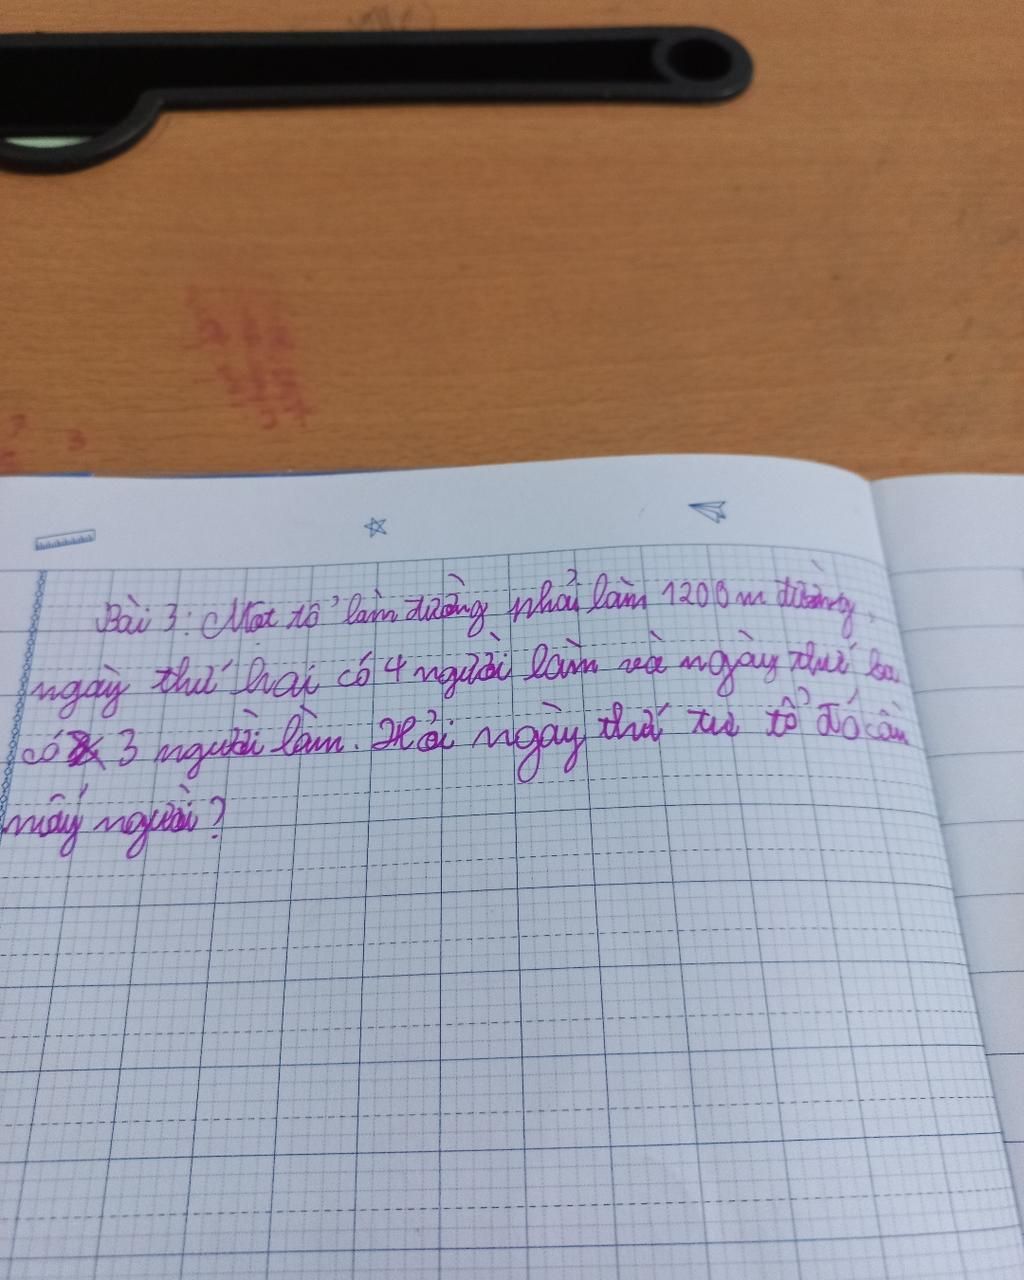 Bài 3: Một tổ làm đường phải làm 1200 m đường,
ngày thứ hai có 4 người làm và ngày thứ ba
có 3 người làm. Hỏi ngày thứ tư tổ đó cần
mấy người?